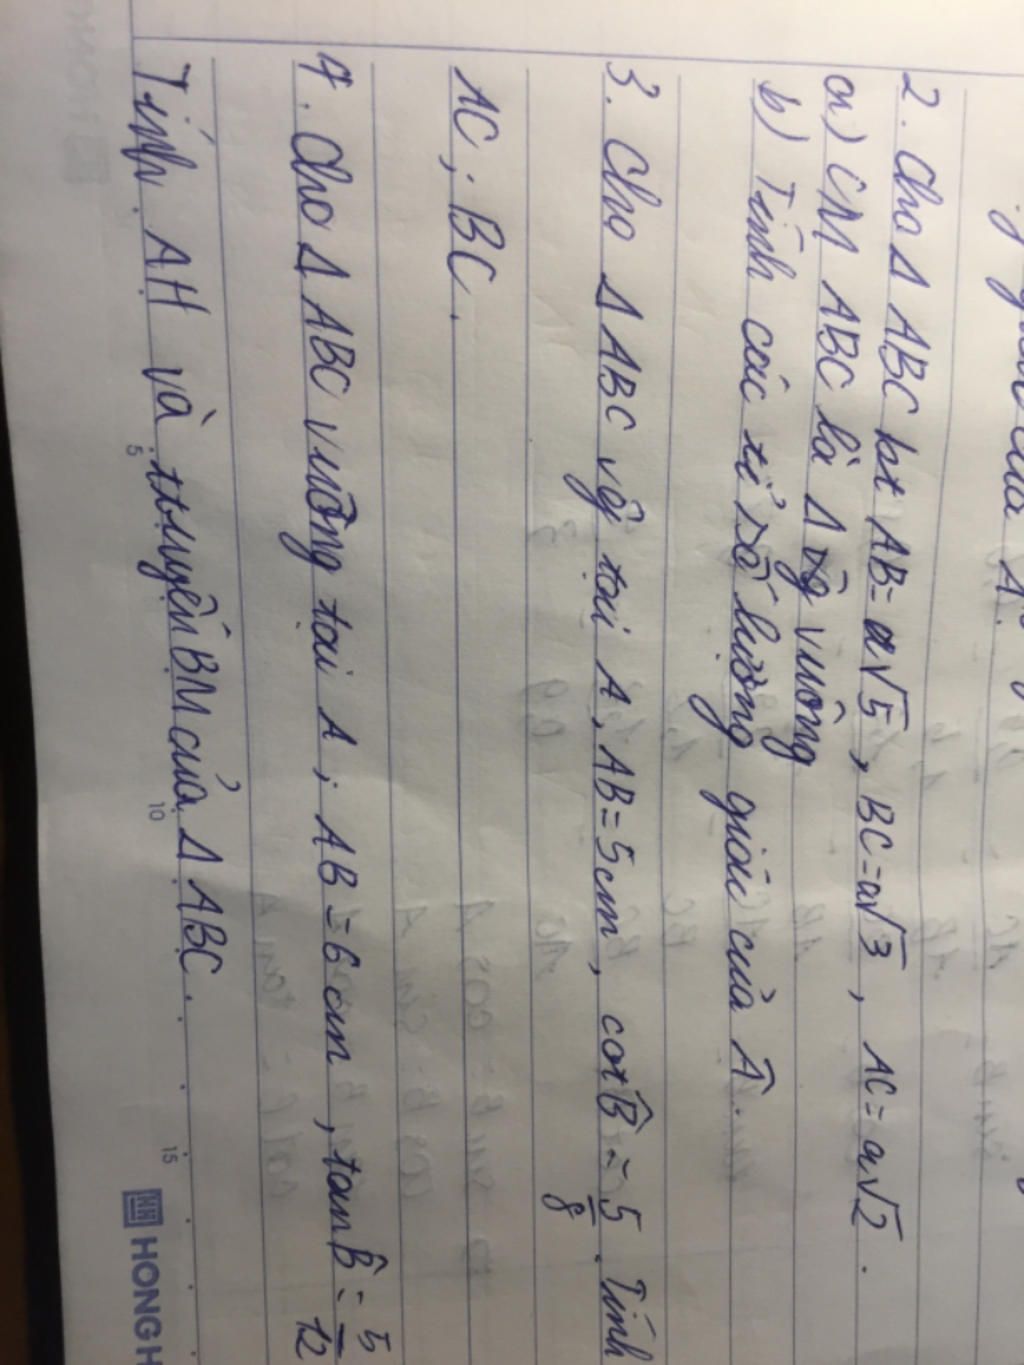 2. Cho Δ ABC bt AB = a√5, BC = a√3, AC = a√2.
a) CM ABC là Δ vg vuông
b) Tính các tỉ số lượng giác của Â.
3. Cho Δ ABC vg tại A, AB = 5cm, cot B̂ = 5/8. Tính
AC; BC.
4. Cho Δ ABC vuông tại A; AB = 6cm, tan B̂ = 5/12
Tính AH và trung tuyến BM của Δ ABC.
5
10
15
HONG H